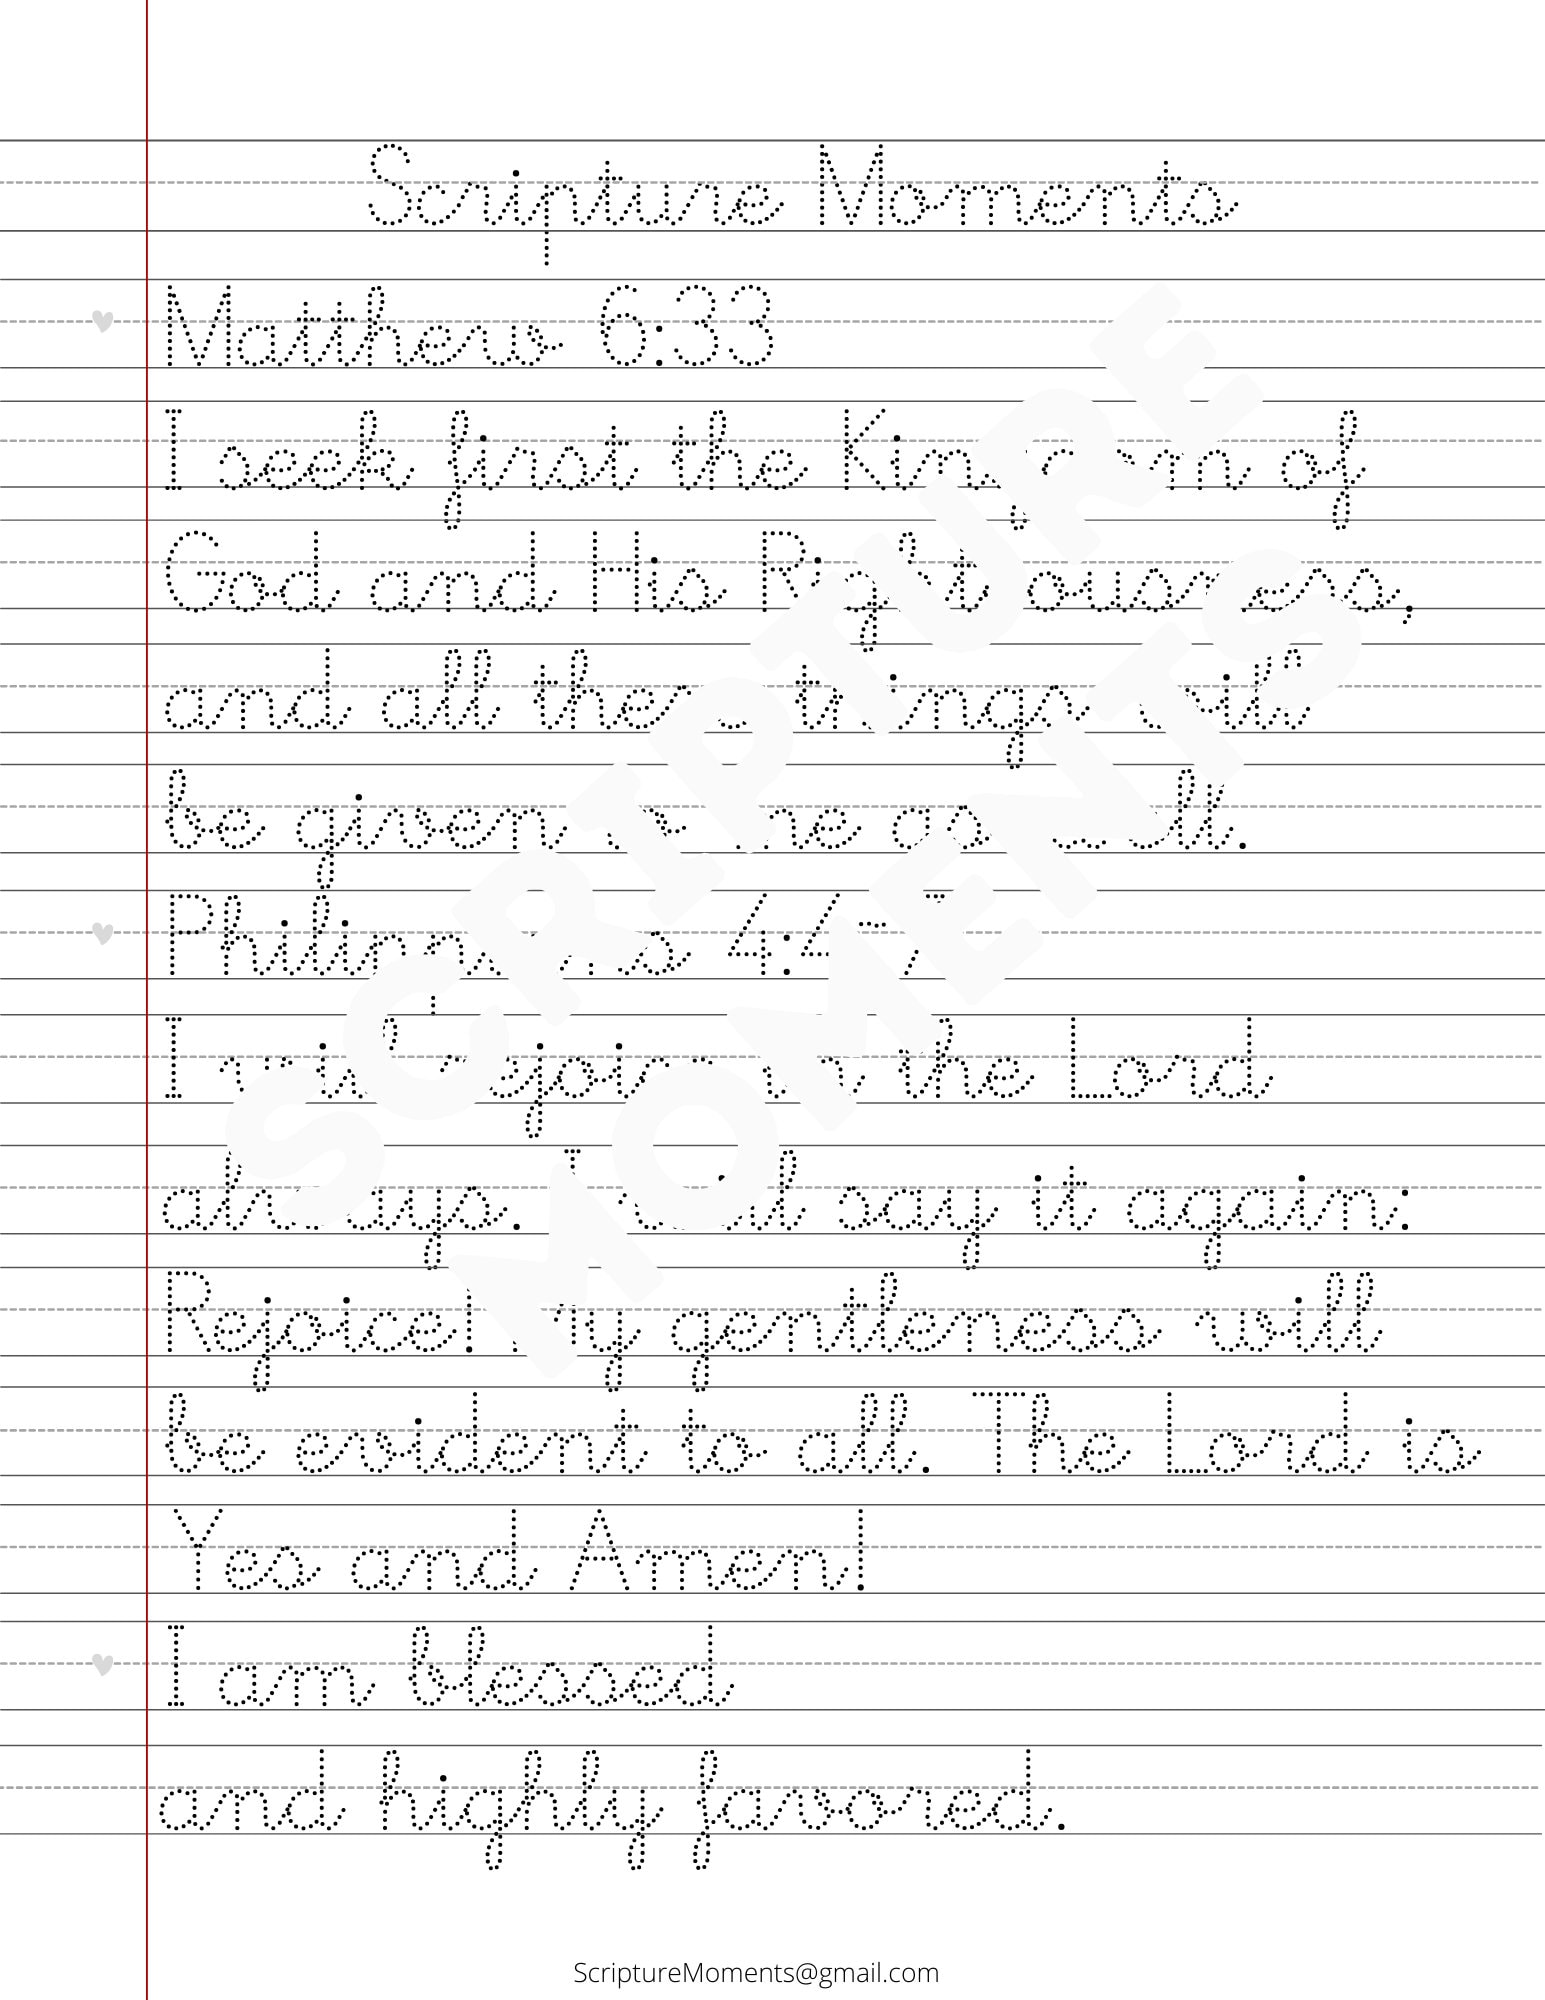 Scripture Moments
Matthew 6:33
I seek first the Kingdom of
God and His Righteousness,
and all these things will
be given to me as well.
Philippians 4:4-7
I will rejoice in the Lord
always. I will say it again:
Rejoice! My gentleness will
be evident to all. The Lord is
Yes and Amen!
I am blessed
and highly favored.
SCRIPTURE
MOMENTS
ScriptureMoments@gmail.com